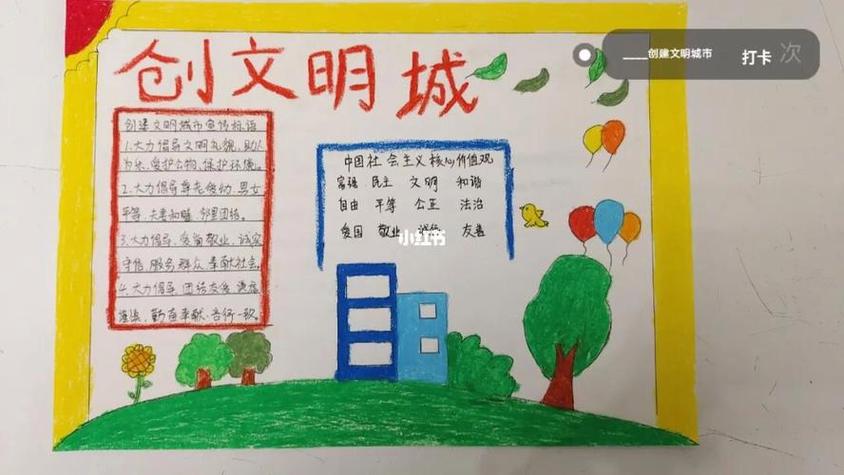 创文明城
____创建文明城市 打卡 次
创建文明城市宣传标语
1.大力倡导文明礼貌、助人
为乐、爱护公物、保护环境。
2.大力倡导尊老爱幼、男女
平等、夫妻和睦、邻里团结。
3.大力倡导、爱岗敬业、诚实
守信、服务群众、奉献社会。
4.大力倡导、团结友善
勤奋奉献、言行一致。
中国社会主义核心价值观
富强 民主 文明 和谐
自由 平等 公正 法治
爱国 敬业 诚信 友善
小红书